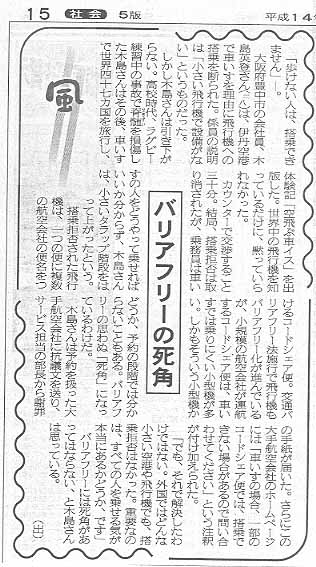 15 社会 5版 平成14
風
バリアフリーの死角
「歩けない人は、搭乗でき
ません」――。
大阪府豊中市の会社員、木
島英登さんは、伊丹空港
で車いすを理由に飛行機への
搭乗を断られた。係員の説明
は「小さい飛行機で設備がな
い」というものだった。
しかし木島さんは引き下が
らない。高校時代、ラグビー
練習中の事故で脊髄を損傷し
た木島さんはその後、車いす
で世界四十七カ国を旅行し、
体験記「空飛ぶ車イス」を出
版した。世界中の飛行機を知
っているだけに、黙っていら
れなかった。
カウンターで交渉すること
三十分。結局、搭乗拒否は取
り消されたが、乗務員は車い
すの人をどうやって乗せれば
いいか分からず、木島さん
は、小さいタラップ階段をは
って上がったという。
搭乗拒否された飛行
機は、一つの便に複数
の航空会社の便名をつ
けるコードシェア便。交通バ
リアフリー法施行で飛行機も
バリアフリー化が進んでいる
が、小規模の航空会社が運航
するコードシェア便は、車い
すでは乗りにくい小型機が多
い。しかもそういう小型機か
どうか、予約の段階では分か
らないこともある。バリアフ
リーの思わぬ「死角」になっ
ているわけだ。
木島さんは予約を扱った大
手航空会社に抗議文を送り、
サービス担当の部長から謝罪
の手紙が届いた。さらにこの
大手航空会社のホームページ
には「車いすの場合、一部の
コードシェア便では、搭乗で
きない場合があるので問い合
わせてください」という注釈
が付け加えられた。
「でも、それで解決したわ
けではない。外国ではどんな
小さい空港や飛行機でも、搭
乗拒否はなかった。重要なの
は、すべての人を乗せる気が
本当にあるかどうか、です」
バリアフリーには死角があ
ってはならない、と木島さん
は思っている。